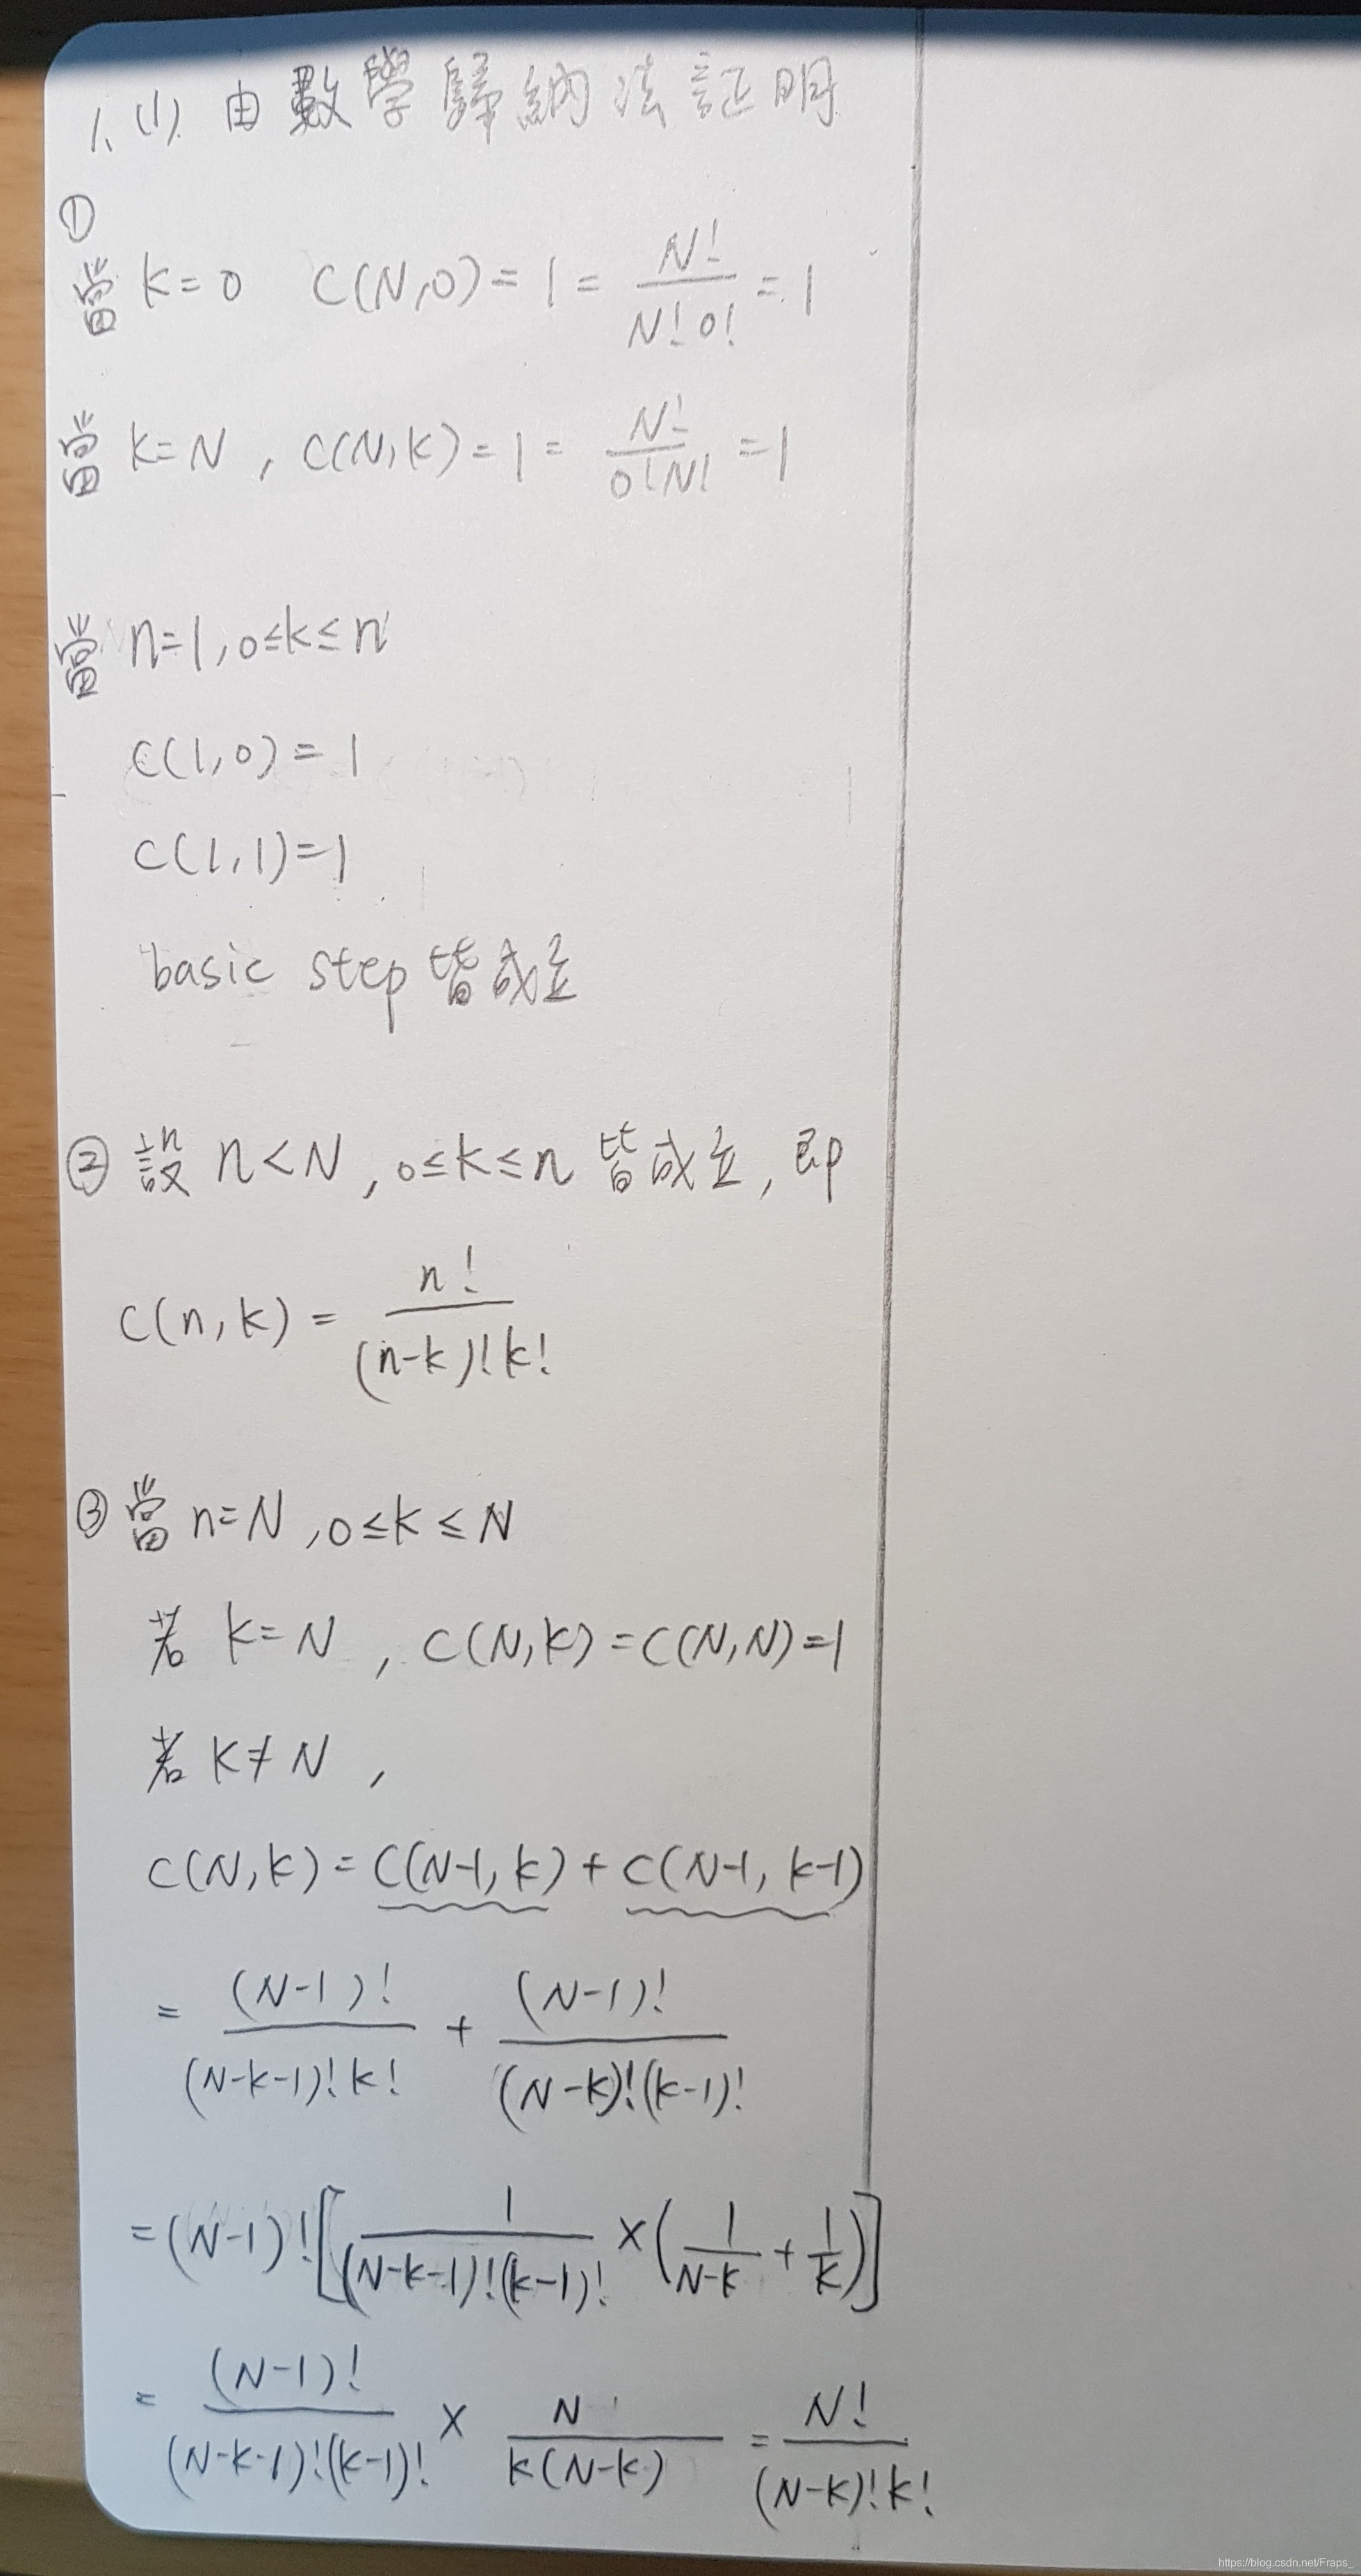 1、(1). 由數學歸納法証明
①
當 k=0 C(N,0) = 1 = \frac{N!}{N!0!} = 1
當 k=N , C(N,k) = 1 = \frac{N!}{0!N!} = 1
當 n=1, 0≤k≤n
C(1,0) = 1
C(1,1) = 1
basic step 皆成立
② 設 n<N , 0≤k≤n 皆成立, 即
C(n,k) = \frac{n!}{(n-k)!k!}
③ 當 n=N , 0≤k≤N
若 k=N , C(N,k) = C(N,N) = 1
若 k≠N ,
C(N,k) = C(N-1,k) + C(N-1,k-1)
= \frac{(N-1)!}{(N-k-1)!k!} + \frac{(N-1)!}{(N-k)!(k-1)!}
= (N-1)! [\frac{1}{(N-k-1)!(k-1)!} × (\frac{1}{N-k} + \frac{1}{k})]
= \frac{(N-1)!}{(N-k-1)!(k-1)!} × \frac{N}{k(N-k)} = \frac{N!}{(N-k)!k!}
https://blog.csdn.net/Fraps_